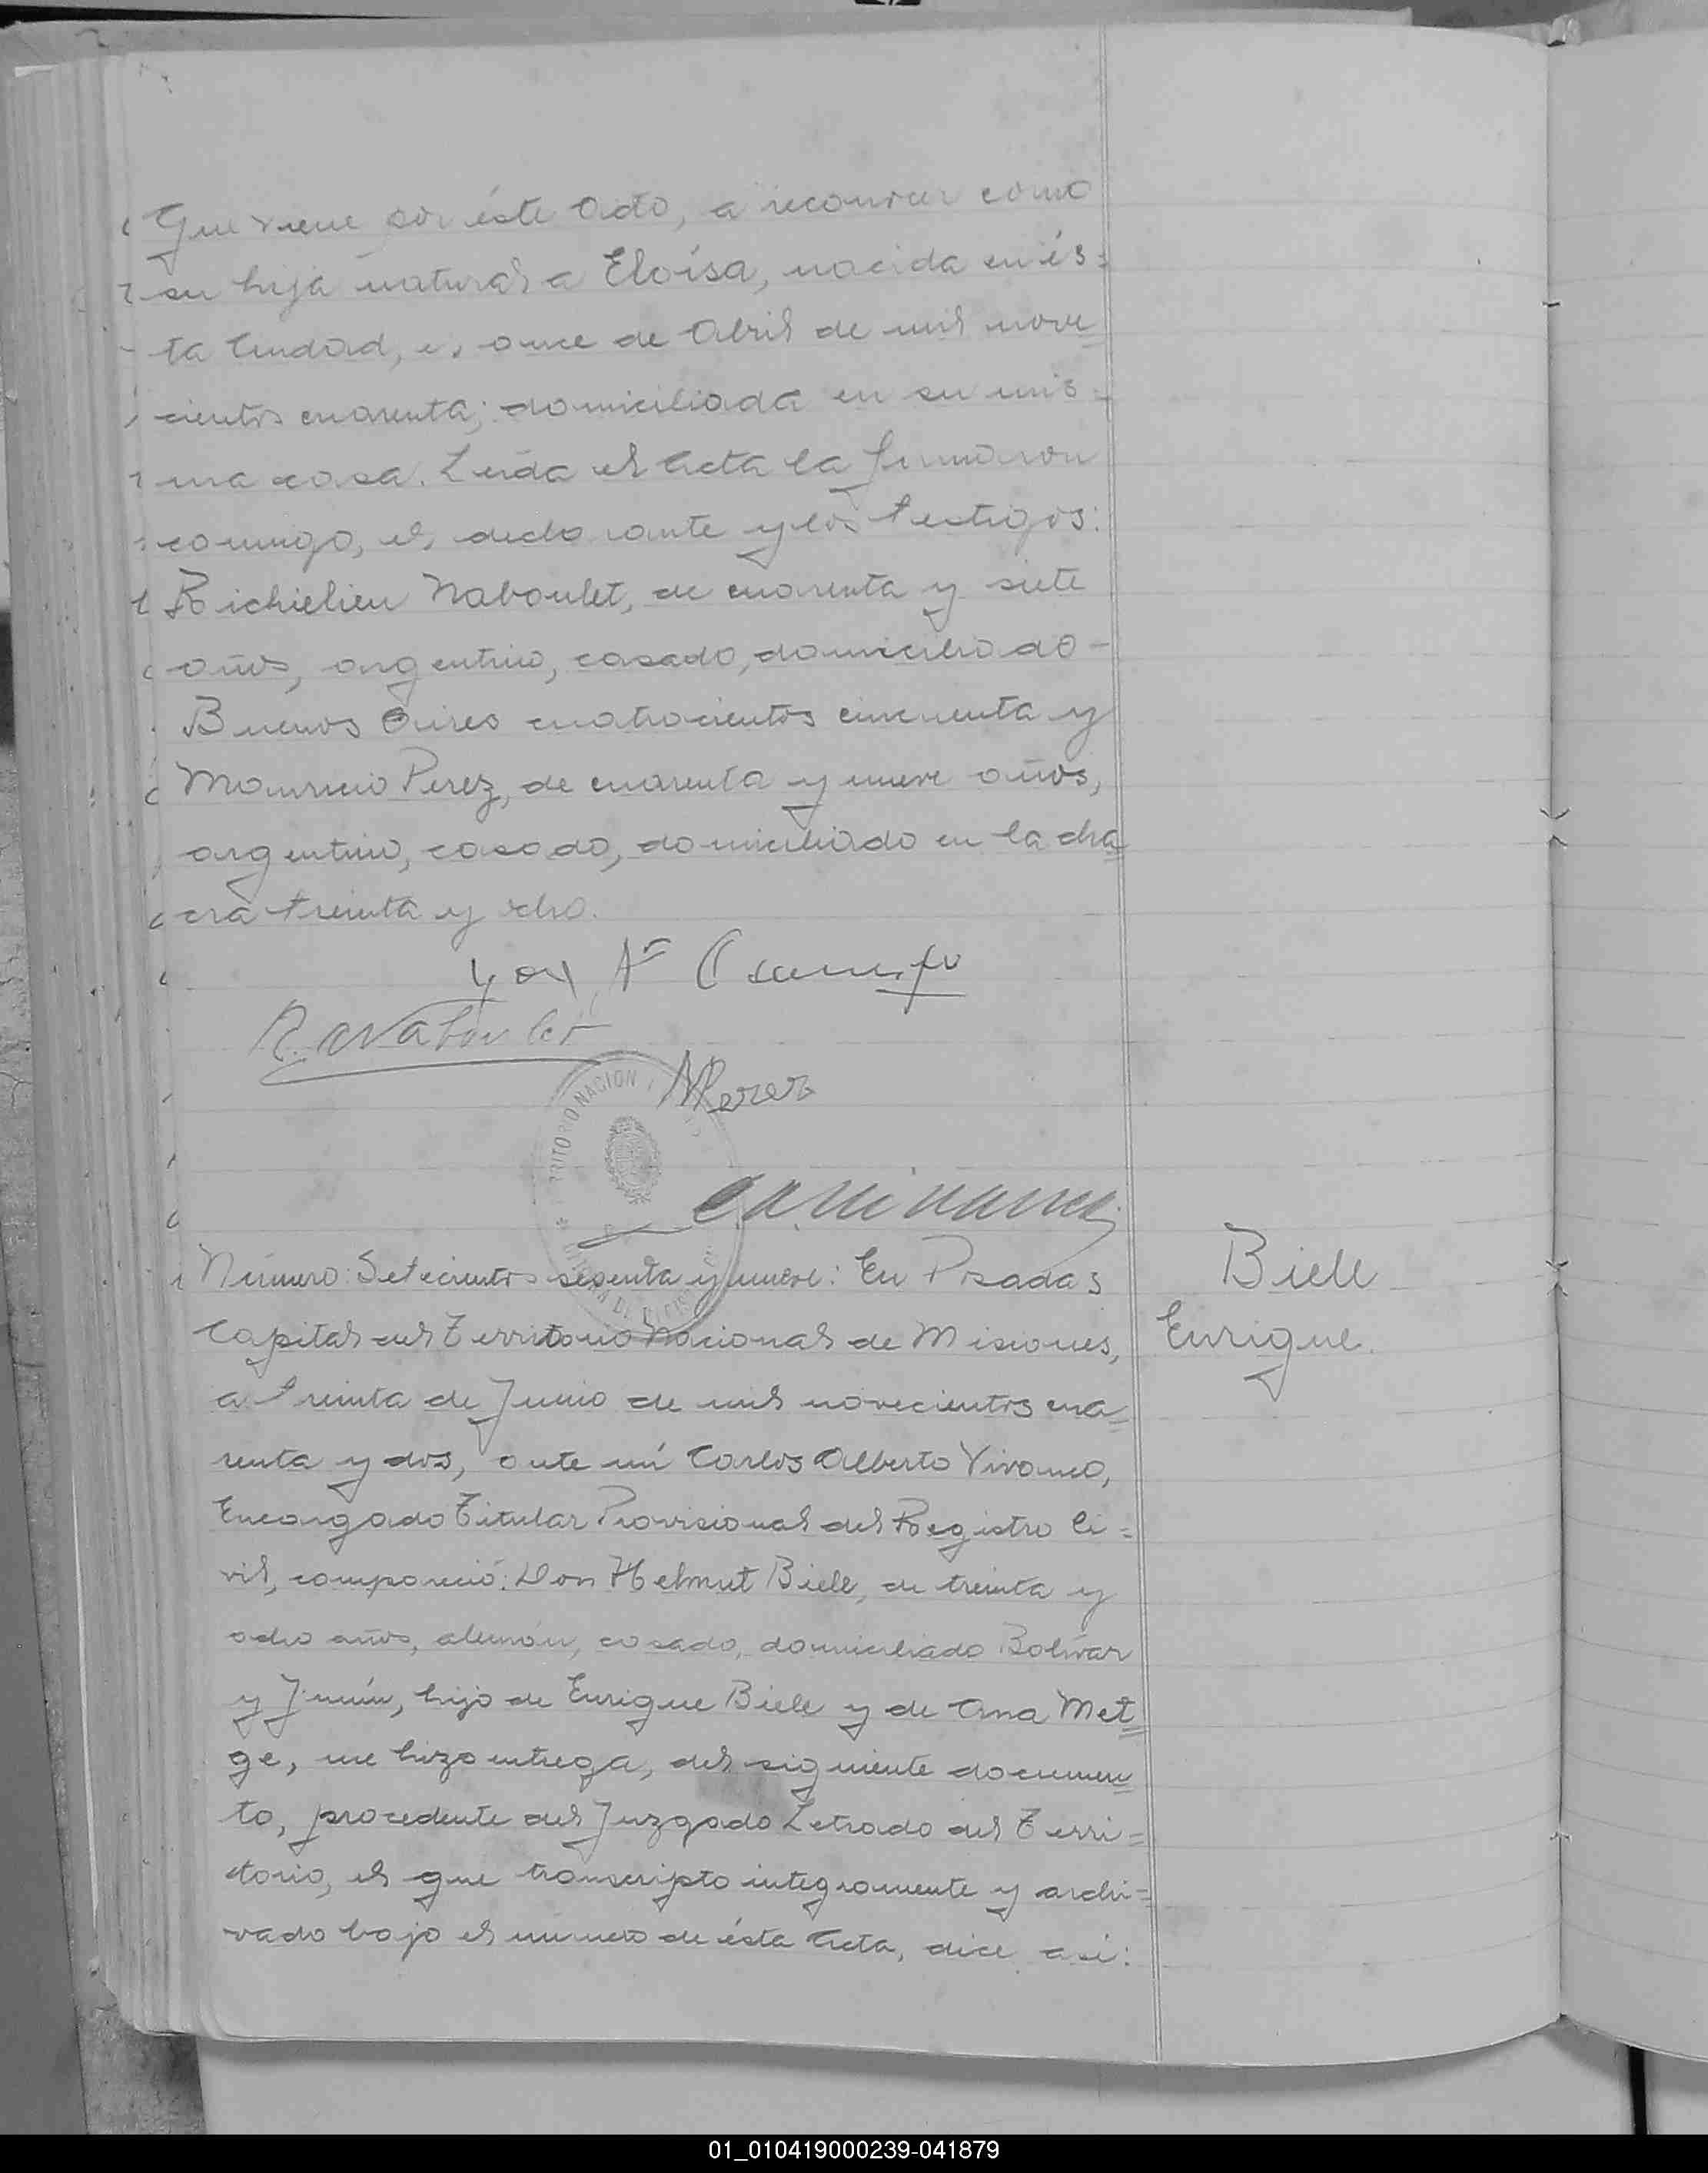 Que viene por éste Acto, a reconocer como
su hija natural a Eloísa, nacida en és=
ta Ciudad, el once de Abril de mil nove=
cientos cuarenta; domiciliada en su mis=
ma casa. Leída el Acta la firmaron
conmigo, el declarante y los testigos:
Richielieu Naboulet, de cuarenta y siete
años, argentino, casado, domiciliado-
Buenos Aires cuatrocientos cincuenta y
Mauricio Perez, de cuarenta y nueve años,
argentino, casado, domiciliado en la cha=
cra treinta y ocho.
R. Naboulet
MPerez
Número: Setecientos sesenta y nueve: En Posadas
Biele
Capital del Territorio Nacional de Misiones,
Enrique.
a treinta de Junio de mil novecientos cua=
renta y dos, ante mí Carlos Alberto Vivanco,
Encargado Titular Provisional del Registro Ci=
vil, compareció: Don Helmut Biele, de treinta y
ocho años, alemán, casado, domiciliado Bolívar
y Junín, hijo de Enrique Biele y de Ana Met=
ge, me hizo entrega, del siguiente documen=
to, procedente del Juzgado Letrado del Terri=
torio, el que transcripto integramente y archi=
vado bajo el número de ésta Acta, dice así:
01_010419000239-041879